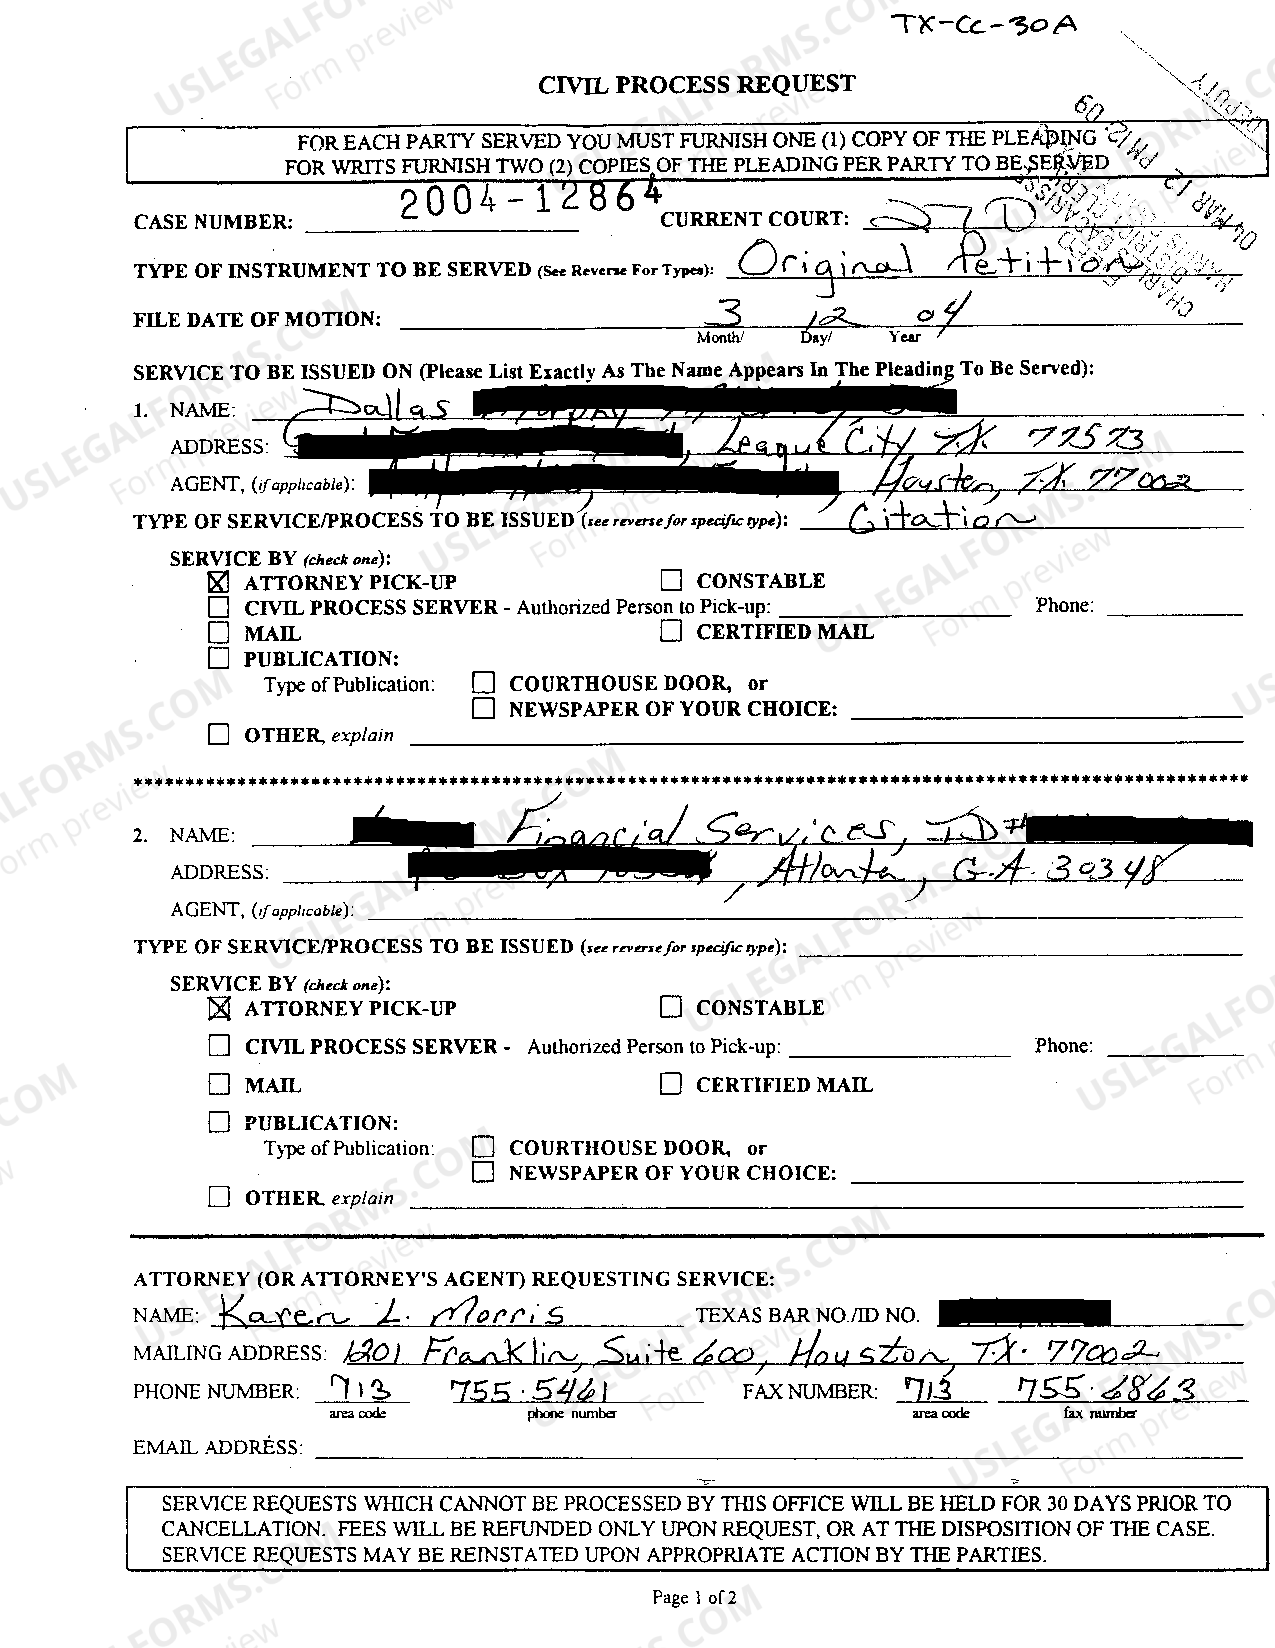 TX-CC-30A
CIVIL PROCESS REQUEST
FOR EACH PARTY SERVED YOU MUST FURNISH ONE (1) COPY OF THE PLEADING
FOR WRITS FURNISH TWO (2) COPIES OF THE PLEADING PER PARTY TO BE SERVED
DEPUTY
04 MAR 12 PM 12:09
CASE NUMBER: 2004-12864 CURRENT COURT:
TYPE OF INSTRUMENT TO BE SERVED (See Reverse For Types): Original Petition
FILE DATE OF MOTION: 3 12 04
Month/ Day/ Year
SERVICE TO BE ISSUED ON (Please List Exactly As The Name Appears In The Pleading To Be Served):
1. NAME: Dallas
ADDRESS: , League City TX. 77573
AGENT, (if applicable): , Houston, TX. 77002
TYPE OF SERVICE/PROCESS TO BE ISSUED (see reverse for specific type): Citation
SERVICE BY (check one):
☒ ATTORNEY PICK-UP ☐ CONSTABLE
☐ CIVIL PROCESS SERVER - Authorized Person to Pick-up: Phone:
☐ MAIL ☐ CERTIFIED MAIL
☐ PUBLICATION:
Type of Publication: ☐ COURTHOUSE DOOR, or
☐ NEWSPAPER OF YOUR CHOICE:
☐ OTHER, explain
2. NAME: Financial Services, ID#
ADDRESS: , Atlanta, G.A. 30348
AGENT, (if applicable):
TYPE OF SERVICE/PROCESS TO BE ISSUED (see reverse for specific type):
SERVICE BY (check one):
☒ ATTORNEY PICK-UP ☐ CONSTABLE
☐ CIVIL PROCESS SERVER - Authorized Person to Pick-up: Phone:
☐ MAIL ☐ CERTIFIED MAIL
☐ PUBLICATION:
Type of Publication: ☐ COURTHOUSE DOOR, or
☐ NEWSPAPER OF YOUR CHOICE:
☐ OTHER, explain
ATTORNEY (OR ATTORNEY'S AGENT) REQUESTING SERVICE:
NAME: Karen L. Morris TEXAS BAR NO./ID NO.
MAILING ADDRESS: 1201 Franklin, Suite 600, Houston, TX. 77002
PHONE NUMBER: 713 755.5461 FAX NUMBER: 713 755.6863
area code phone number area code fax number
EMAIL ADDRESS:
SERVICE REQUESTS WHICH CANNOT BE PROCESSED BY THIS OFFICE WILL BE HELD FOR 30 DAYS PRIOR TO
CANCELLATION. FEES WILL BE REFUNDED ONLY UPON REQUEST, OR AT THE DISPOSITION OF THE CASE.
SERVICE REQUESTS MAY BE REINSTATED UPON APPROPRIATE ACTION BY THE PARTIES.
Page 1 of 2
USLEGALFORMS.COM
Form preview